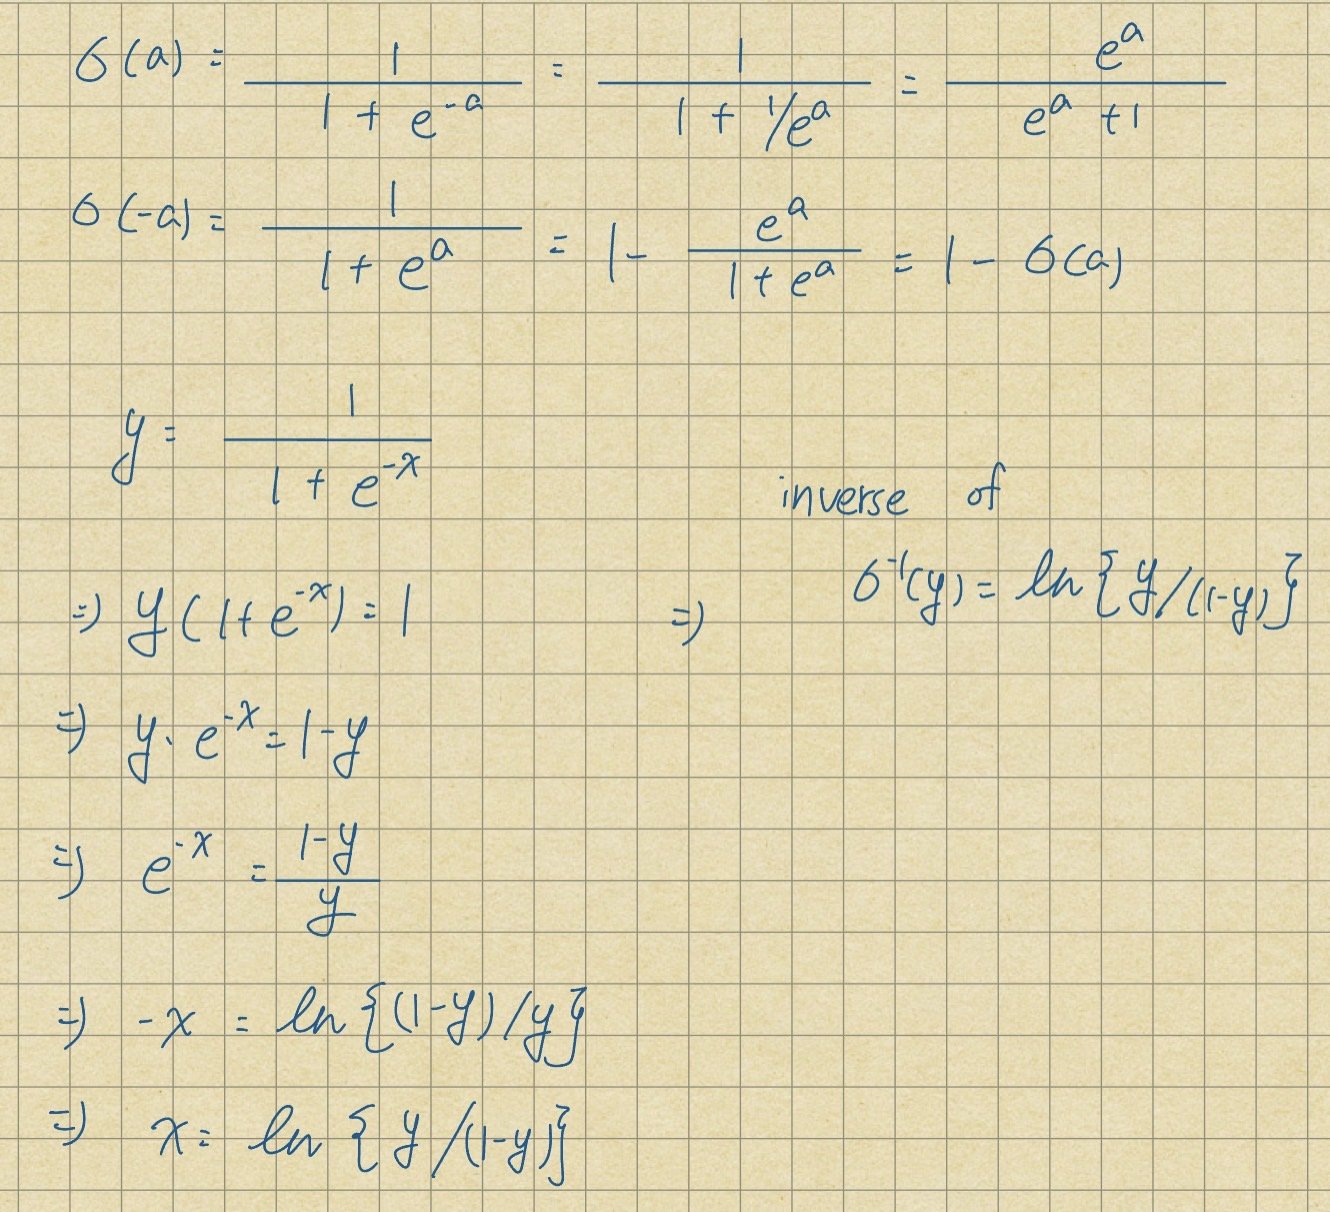 σ(a) = 1 / (1 + e^{-a}) = 1 / (1 + 1/e^a) = e^a / (e^a + 1)
σ(-a) = 1 / (1 + e^a) = 1 - e^a / (1 + e^a) = 1 - σ(a)
y = 1 / (1 + e^{-x})
⇒ y(1 + e^{-x}) = 1
⇒ y · e^{-x} = 1 - y
⇒ e^{-x} = (1-y) / y
⇒ -x = ln{(1-y)/y}
⇒ x = ln{y/(1-y)}
inverse of
⇒ σ^{-1}(y) = ln{y/(1-y)}